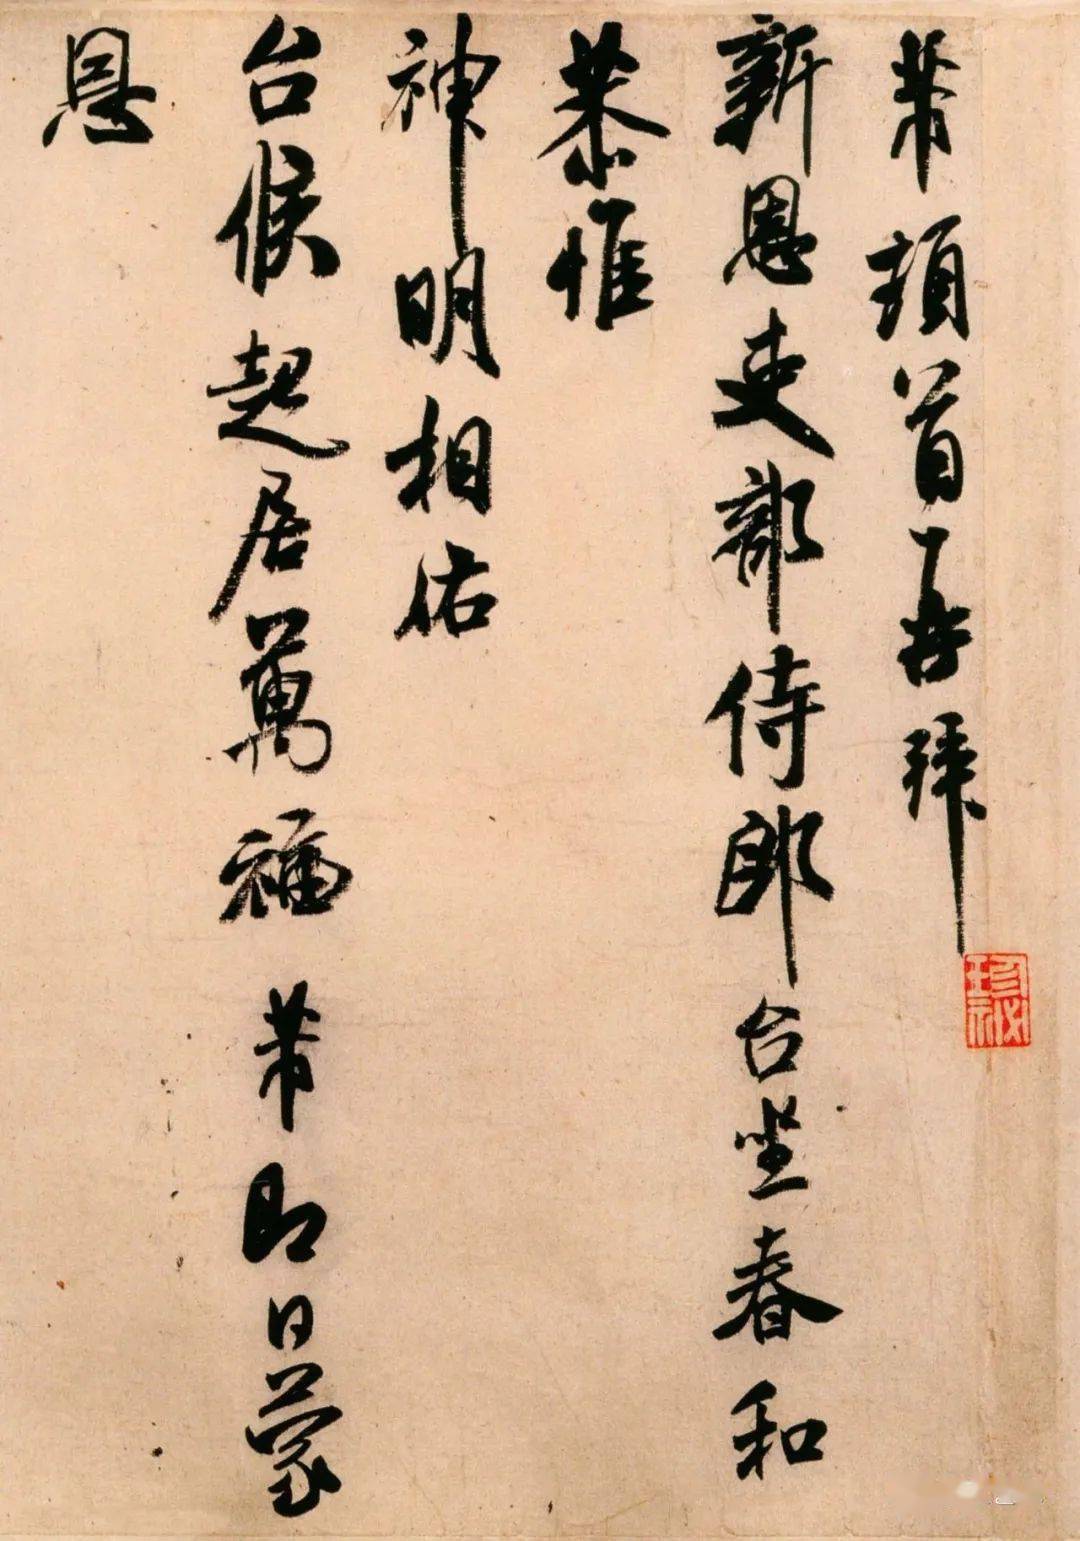 芾頓首再拜
新恩吏部侍郎台坐春和
恭惟
神明相佑
台候起居萬福芾即日蒙
恩
珍祕